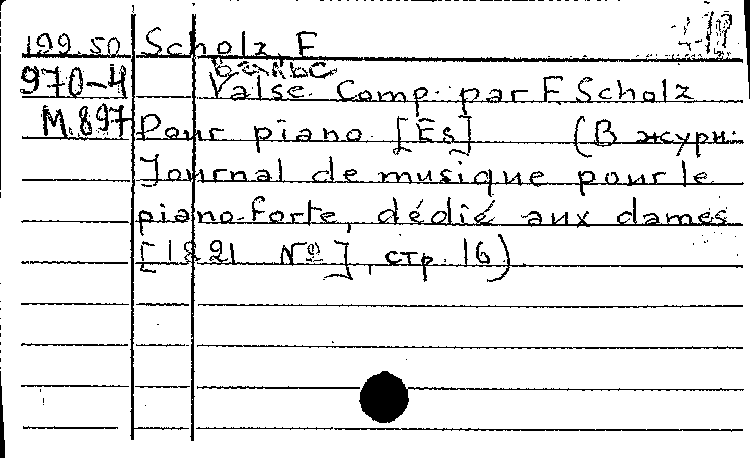 199.50 Scholz, F
Вальс
970-4 Valse. Comp. par F. Scholz
М.897 Pour piano. [Es] (В журн:
Journal de musique pour le
piano-forte, dédié aux dames
[1821 №], стр. 16)